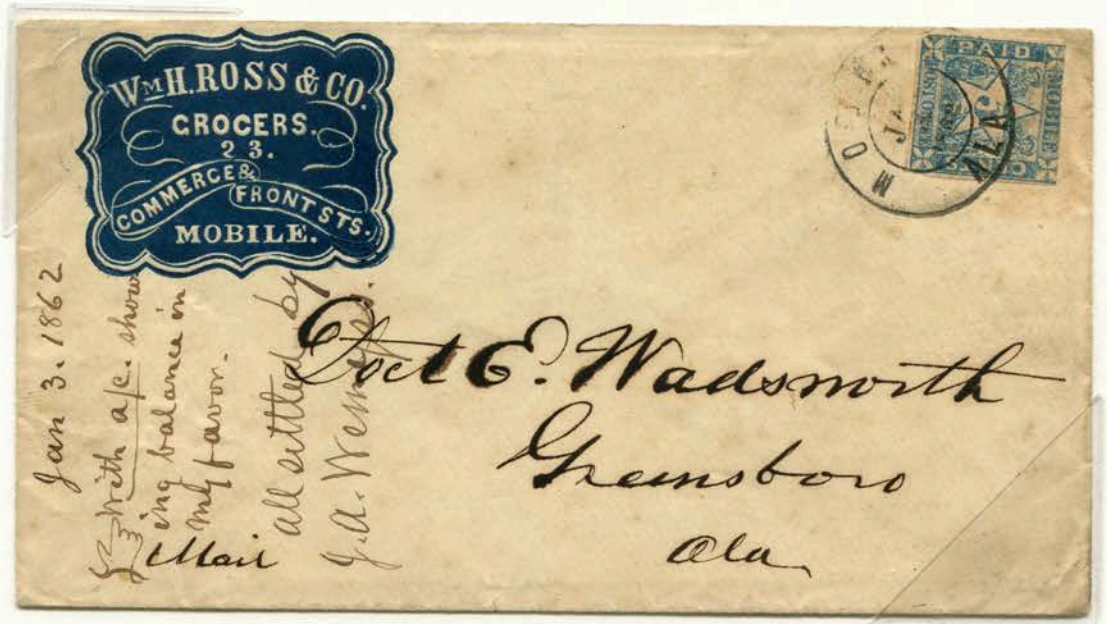 WM H. ROSS & CO.
GROCERS.
23.
COMMERCE &
FRONT STS.
MOBILE.
PAID
POST OFFICE
MOBILE
5
CENTS
MOBILE
JA
ALA
Jan 3. 1862
With a/c. show
ing balance in
my favor.
all settled by
J. A. Wemyss.
Mail
Doct E. Wadsworth
Greensboro
Ala